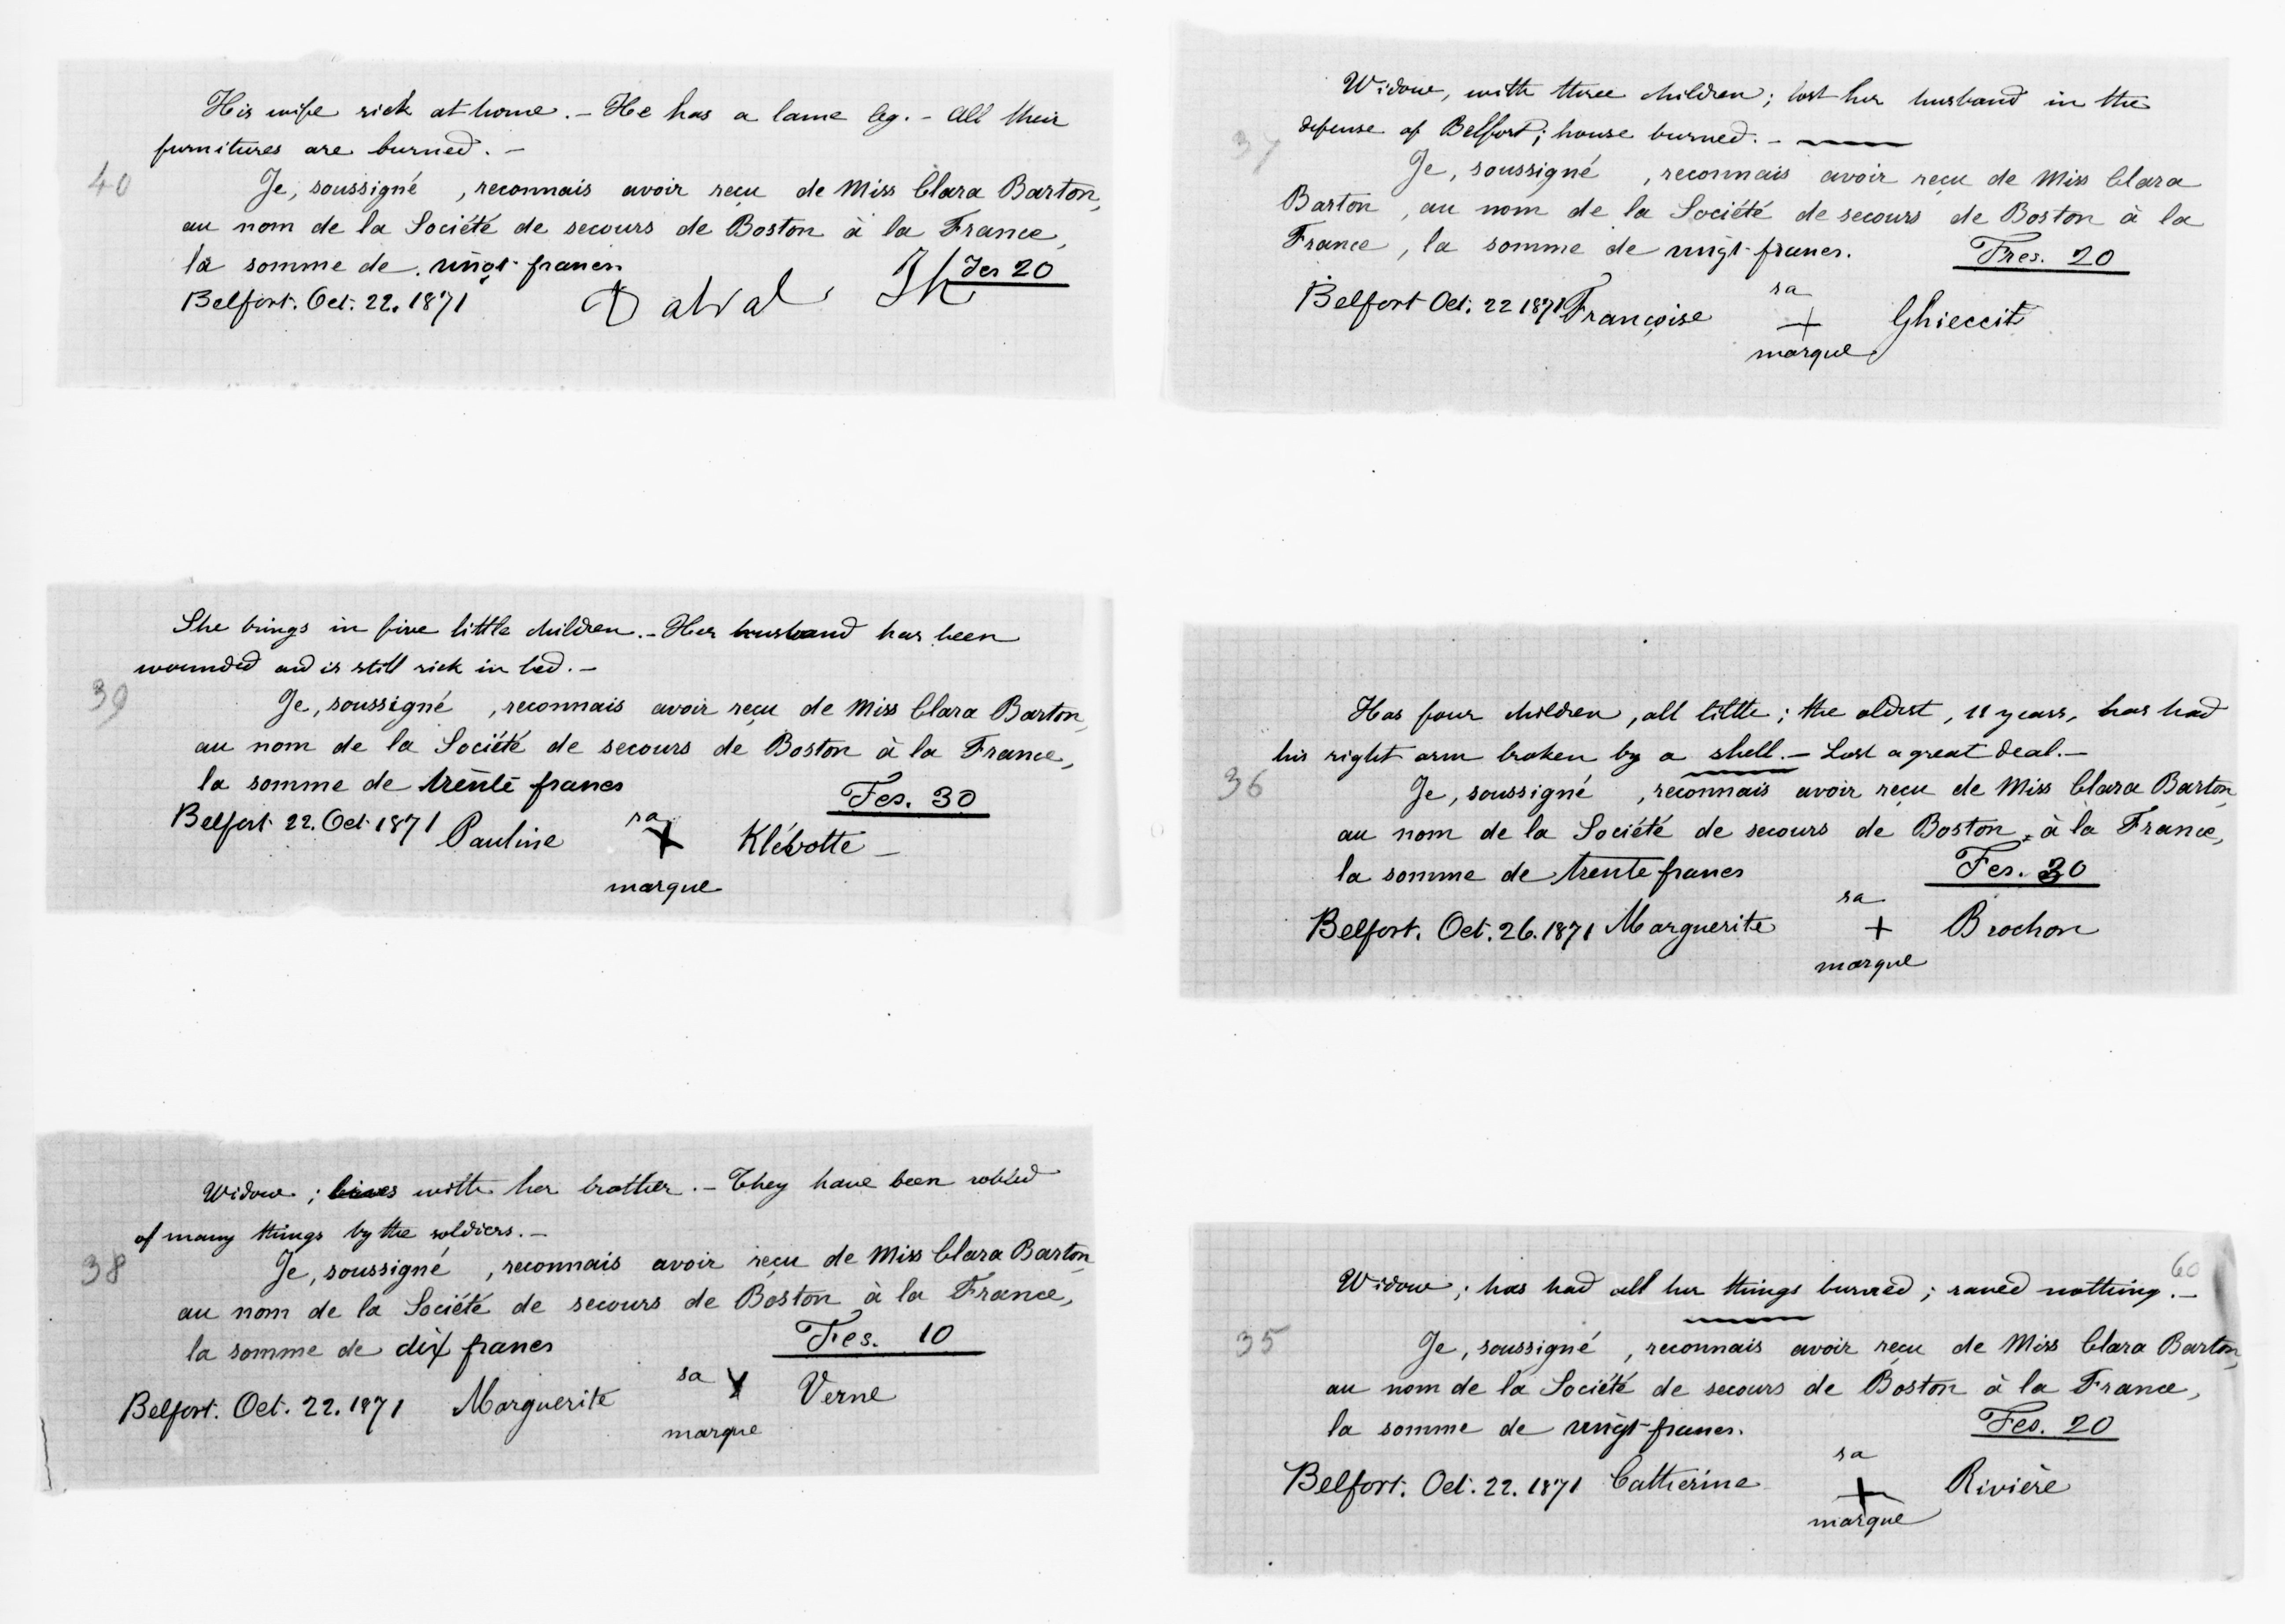 His wife sick at home. - He has a lame leg. - All their
furnitures are burned. -
40
Je, soussigné , reconnais avoir reçu de Miss Clara Barton,
au nom de la Société de secours de Boston à la France,
la somme de vingt francs
Fcs 20
Belfort. Oct. 22. 1871
She brings in five little children. - Her husband has been
wounded and is still sick in bed. -
39
Je, soussigné , reconnais avoir reçu de Miss Clara Barton,
au nom de la Société de secours de Boston à la France,
la somme de trente francs
Fcs. 30
Belfort 22. Oct. 1871 Pauline sa X Klévotte -
marque
Widow ; lives with her brother. - They have been robbed
of many things by the soldiers. -
38
Je, soussigné , reconnais avoir reçu de Miss Clara Barton,
au nom de la Société de secours de Boston à la France,
la somme de dix francs
Fcs. 10
Belfort. Oct. 22. 1871 Marguerite sa X Verne
marque
Widow, with three children; lost her husband in the
defense of Belfort; house burned. -
37
Je, soussigné , reconnais avoir reçu de Miss Clara
Barton , au nom de la Société de secours de Boston à la
France, la somme de vingt francs.
Frcs. 20
Belfort Oct. 22 1871 Françoise sa + Ghieccit
marque
Has four children, all little; the oldest, 11 years, has had
his right arm broken by a shell. - Lost a great deal. -
36
Je, soussigné , reconnais avoir reçu de Miss Clara Barton,
au nom de la Société de secours de Boston à la France,
la somme de trente francs
Fcs. 30
Belfort. Oct. 26. 1871 Marguerite sa + Brochon
marque
60
Widow; has had all her things burned; saved nothing. -
35
Je, soussigné , reconnais avoir reçu de Miss Clara Barton,
au nom de la Société de secours de Boston à la France,
la somme de vingt francs.
Fcs. 20
Belfort. Oct. 22. 1871 Catherine sa + Rivière
marque